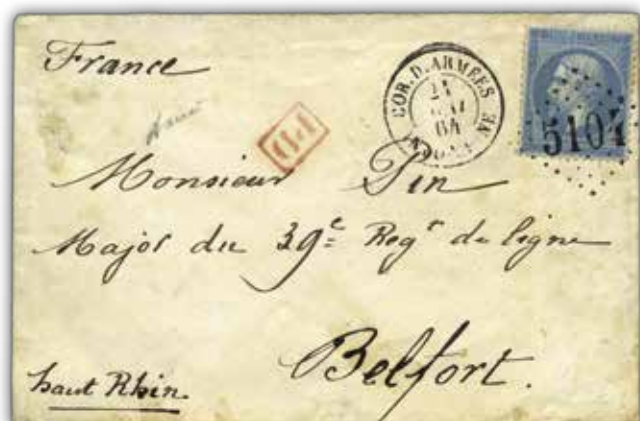 France
COR. D. ARMÉES
21
64
5104
PD
Monsieur Pin
Major du 39e Regt de ligne
Belfort.
haut Rhin.